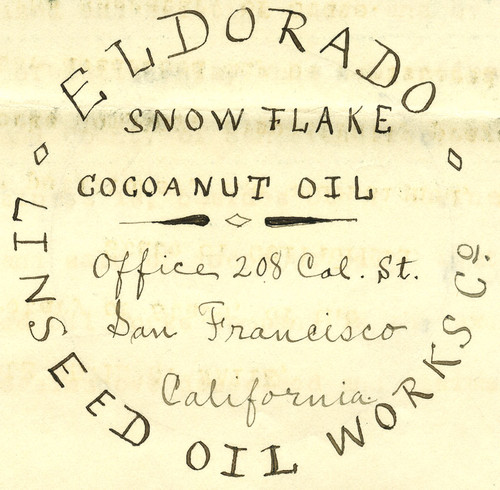 ELDORADO
SNOW FLAKE
COCOANUT OIL
Office 208 Cal. St.
San Francisco
California
LINSEED OIL WORKS Co